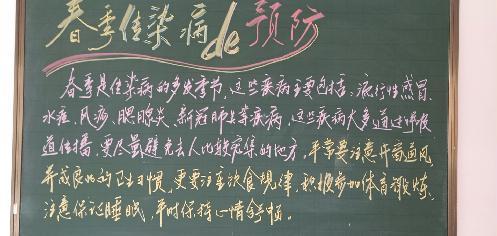 春季传染病de预防
春季是传染病的多发季节，这些疾病主要包括：流行性感冒、
水痘、风疹、腮腺炎、新冠肺炎等疾病，这些疾病大多通过呼吸
道传播，要尽量避免去人比较密集的地方，平常要注意开窗通风
养成良好的卫生习惯，更要注意饮食规律，积极参加体育锻炼，
注意保证睡眠，平时保持心情舒畅。